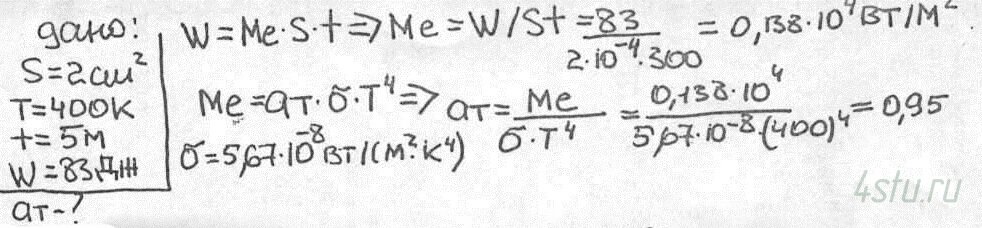 дано:
S=2см²
T=400К
t=5м
W=83Дж
aт-?
W=Me·S·t⇒Me=W/St=83/(2·10⁻⁴·300)=0,138·10⁴Вт/м².
Me=aт·σ·T⁴⇒aт=Me/(σ·T⁴)=0,138·10⁴/(5,67·10⁻⁸·(400)⁴)=0,95
σ=5,67·10⁻⁸Вт/(м²·К⁴)
4stu.ru